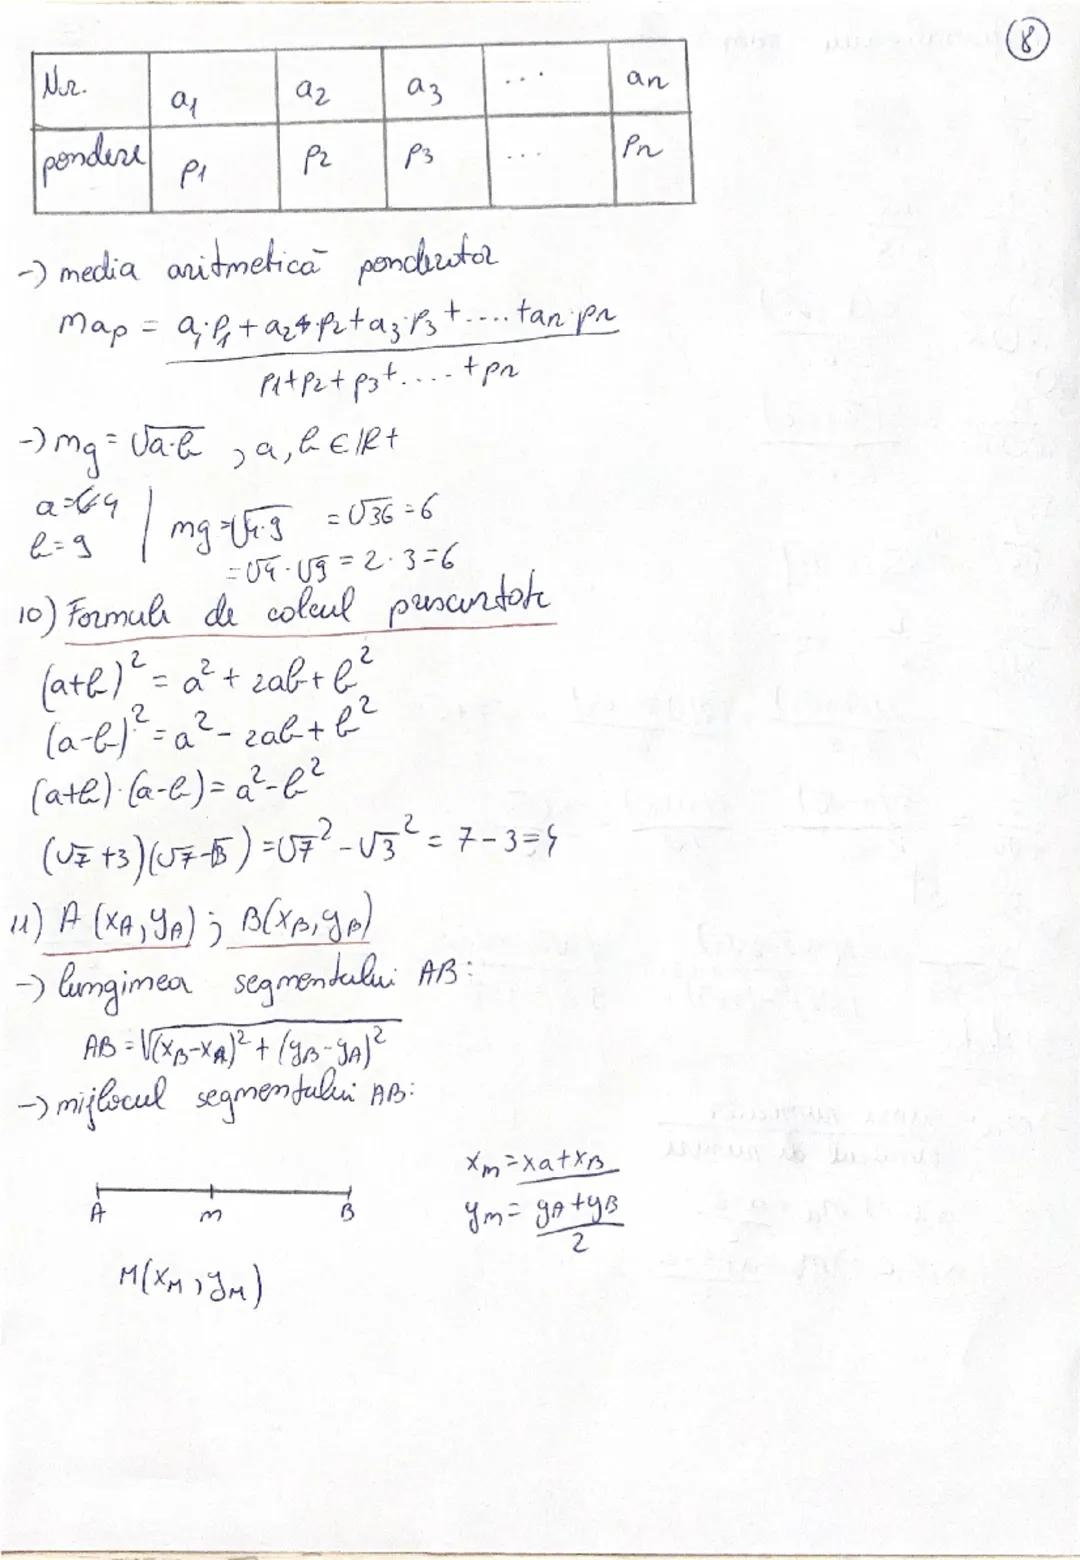 8
Nr. a1 a2 a3 ... an
pondere p1 p2 p3 ... pn
-) media aritmetică ponderator
map = a1·p1 + a2·p2 + a3·p3 + .... + an·pn
p1+p2+p3+.....+pn
-) mg = √a·b , a, b ∈ R+
a=4 | mg=√4·9 = √36 = 6
b=9 = √4·√9 = 2·3=6
10) Formule de calcul prescurtate
(a+b)² = a² + 2ab + b²
(a-b)² = a² - 2ab + b²
(a+b)·(a-b) = a²-b²
(√7 +3)(√7-√3) = √7² - √3² = 7-3=4
11) A (xA, yA) ; B(xB, yB)
-) lungimea segmentului AB:
AB = √(xB-xA)² + (yB-yA)²
-) mijlocul segmentului AB:
xm = xa+xB
A m B
ym = yA+yB
2
M(xM, yM)